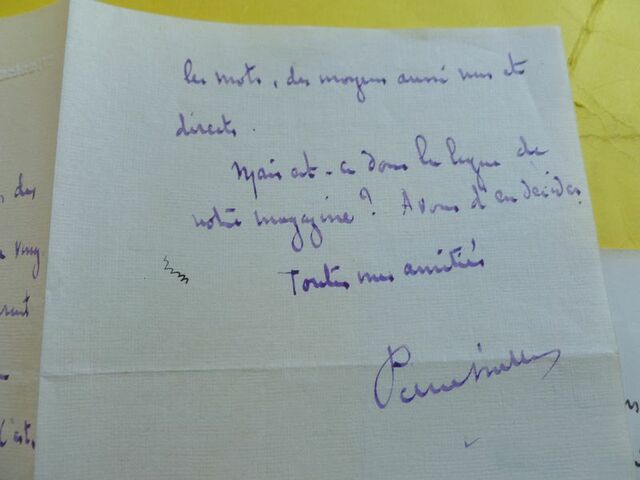 les mots, des moyens aussi nus et
directs.
Mais est-ce dans la ligne de
votre magazine? A vous d'en décider.
Toutes mes amitiés
des
c'est,